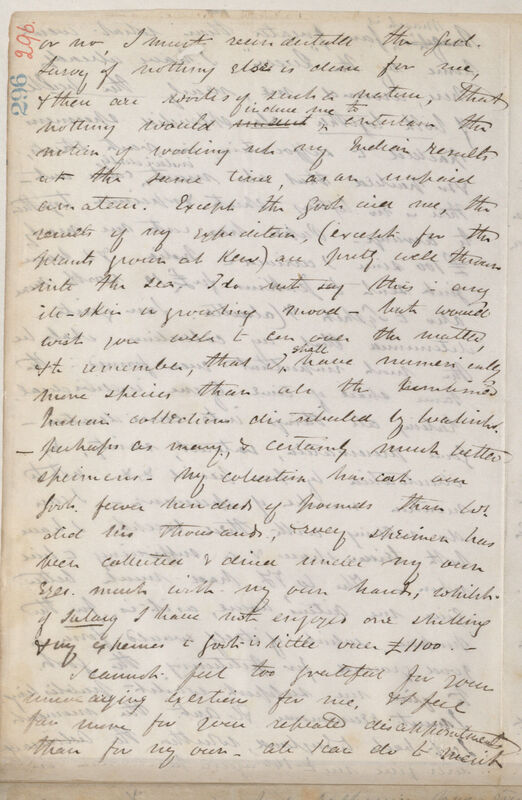 296
296.
or no, I must reinstitute the Geol.
Survey if nothing else is done for me,
& there are works of such a nature, that
nothing would induce me to entertain the
notion of working up my Indian results
at the same time, as an unpaid
amateur. Except the Govt. aid me, the
results of my expedition, (except for the
plants grown at Kew) are pretty well thrown
into the sea, I do not say this in any
ill-  or grumbling mood — but would
wish you well to con over the matter,
& to remember, that I shall have numerically
more species than all the combined
Indian collections distributed by Wallich.
— perhaps as many, & certainly much better
specimens — My collection has cost our
Govt. fewer hundreds of pounds than his
did his thousands, every specimen has
been collected & dried under my own
eyes. much with my own hands, whilst
of Salary I have not enjoyed one shilling
& my expenses to Govt. is little over £1100. —
I cannot feel too grateful for your
exertion for me. & I feel
far more for your repeated disappointments
than for my own — all I can do to merit